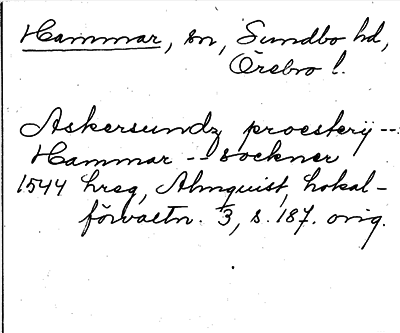 Hammar, sn, Sundbo hd,
Örebro l.
Askersundz proesterij --
Hammar -- sockner
1544 hreg, Almquist, Lokal-
förvaltn. 1/3, s. 187. orig.